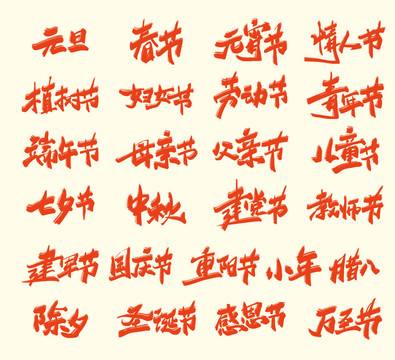 元旦 春节 元宵节 情人节
植树节 妇女节 劳动节 青年节
端午节 母亲节 父亲节 儿童节
七夕节 中秋 建党节 教师节
建军节 国庆节 重阳节 小年 腊八
除夕 圣诞节 感恩节 万圣节